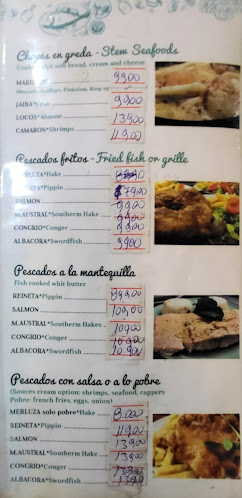 Chupes en greda - Stem Seafoods
Cooked with soft bread, cream and cheese
MARISCO 9.900
(Mussels, Scallops,
JAIBA*Crab 9.900
LOCOS*Abalone 13.900
CAMARON*Shrimps 11.900
Pescados fritos - Fried fish or grille
MERLUZA*Hake
REINETA*Pippin
SALMON 9.900
M.AUSTRAL*Southerm Hake 9.900
CONGRIO*Conger 9.900
ALBACORA*Swordfish 9.900
Pescados a la mantequilla
Fish cooked whit butter
REINETA*Pippin
SALMON
M.AUSTRAL*Southerm Hakes
CONGRIO*Conger
ALBACORA*Swordfish 10.900
Pescados con salsa o a lo pobre
(Sources cream option: shrimps, seafood, cappers
Pobre: french fries, eggs, onion)
MERLUZA solo pobre*Hake 8.000
REINETA*Pippin 11.900
SALMON 13.900
M.AUSTRAL*Southerm Hake 13.900
CONGRIO*Conger 13.900
ALBACORA*Swordfish 13.900